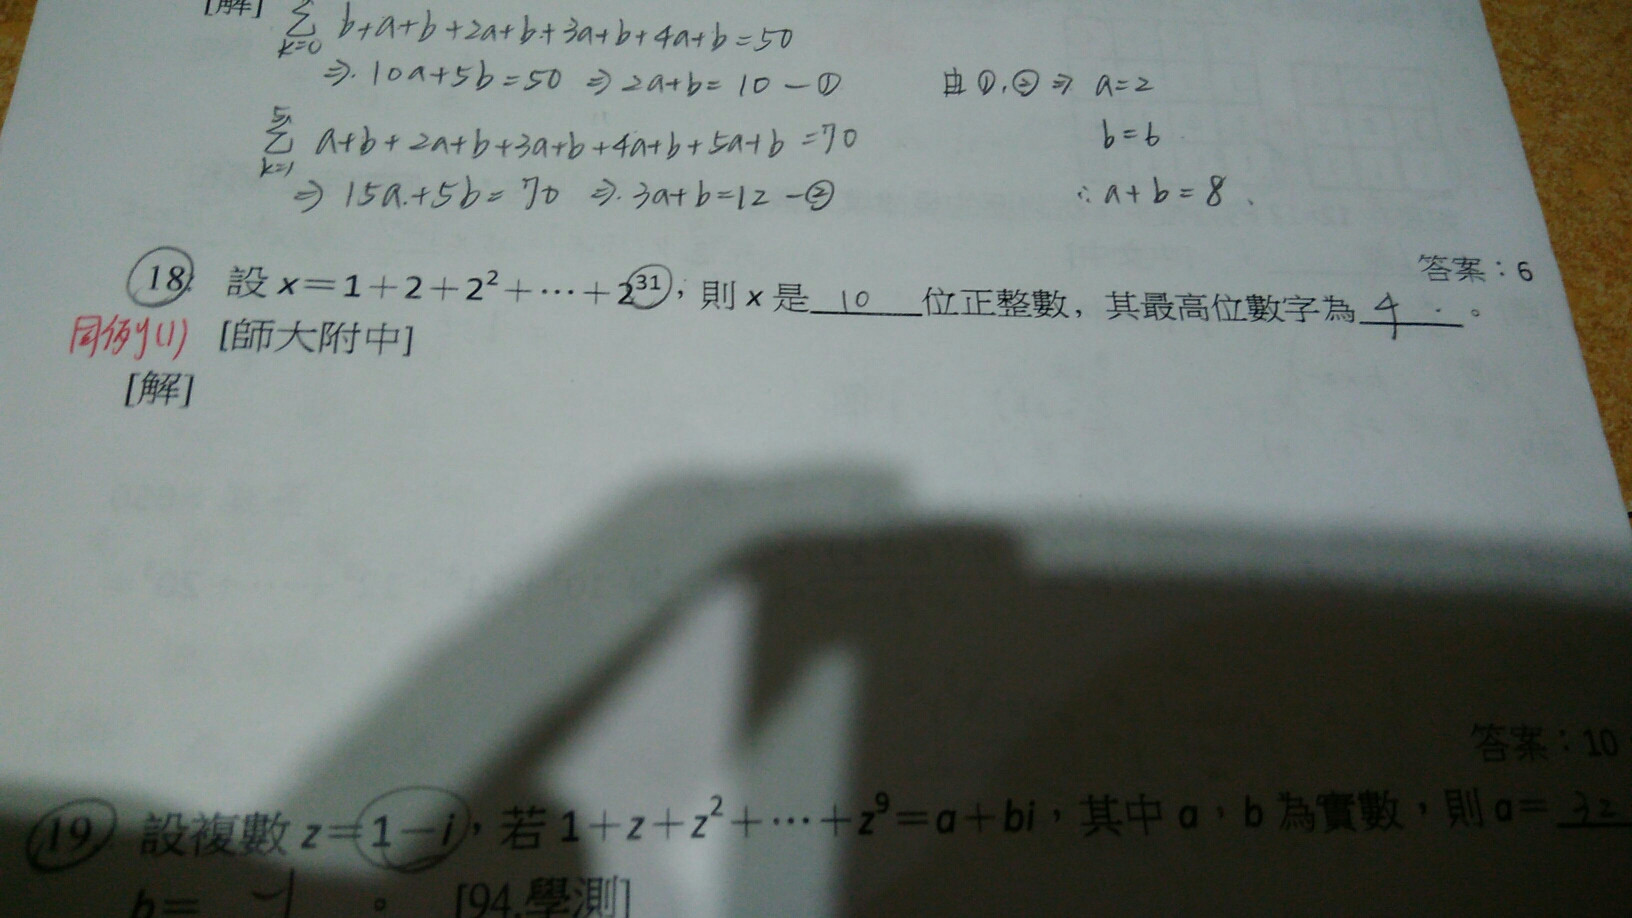 [解] Σ k=0 b+a+b+2a+b+3a+b+4a+b=50
⇒ 10a+5b=50 ⇒ 2a+b=10 —① 由①,②⇒ a=2
5 Σ k=1 a+b+2a+b+3a+b+4a+b+5a+b=70 b=6
⇒ 15a+5b=70 ⇒ 3a+b=12 —② ∴a+b=8
答案：6
18. 設 x＝1＋2＋2²＋⋯＋2³¹，則 x 是 10 位正整數，其最高位數字為 4 。
同例(1) [師大附中]
[解]
答案：10
19 設複數 z＝1－i，若 1＋z＋z²＋⋯＋z⁹＝a＋bi，其中 a，b 為實數，則 a＝ 32
b＝ 。 [94.學測]